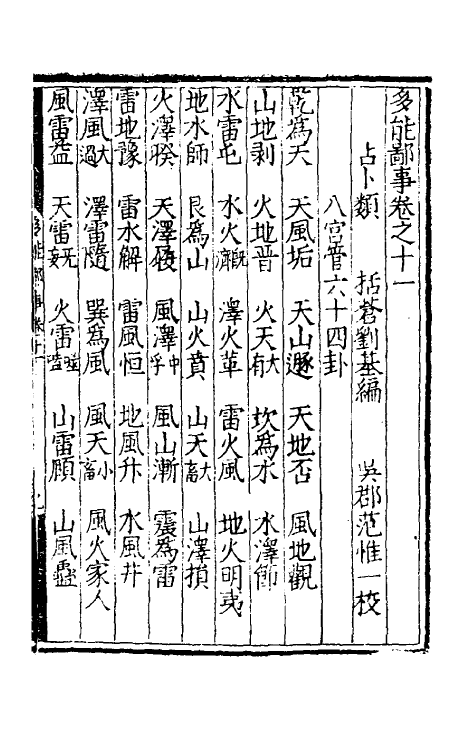 多能鄙事卷之十一
占卜類 括蒼劉基編 吳郡范惟一校
八宮六十四卦
乾為天 天風垢 天山遯 天地否 風地觀
山地剥 火地晉 火天大有 坎為水 水澤節
水雷屯 水火旣濟 澤火革 雷火風 地火明夷
地水師 艮為山 山火賁 山天大畜 山澤損
火澤睽 天澤履 風澤中孚 風山漸 震為雷
雷地豫 雷水解 雷風恒 地風升 水風井
澤風大過 澤雷隨 巽為風 風天小畜 風火家人
風雷益 天雷无妄 火雷噬嗑 山雷頤 山風蠱
多能鄙事卷十一